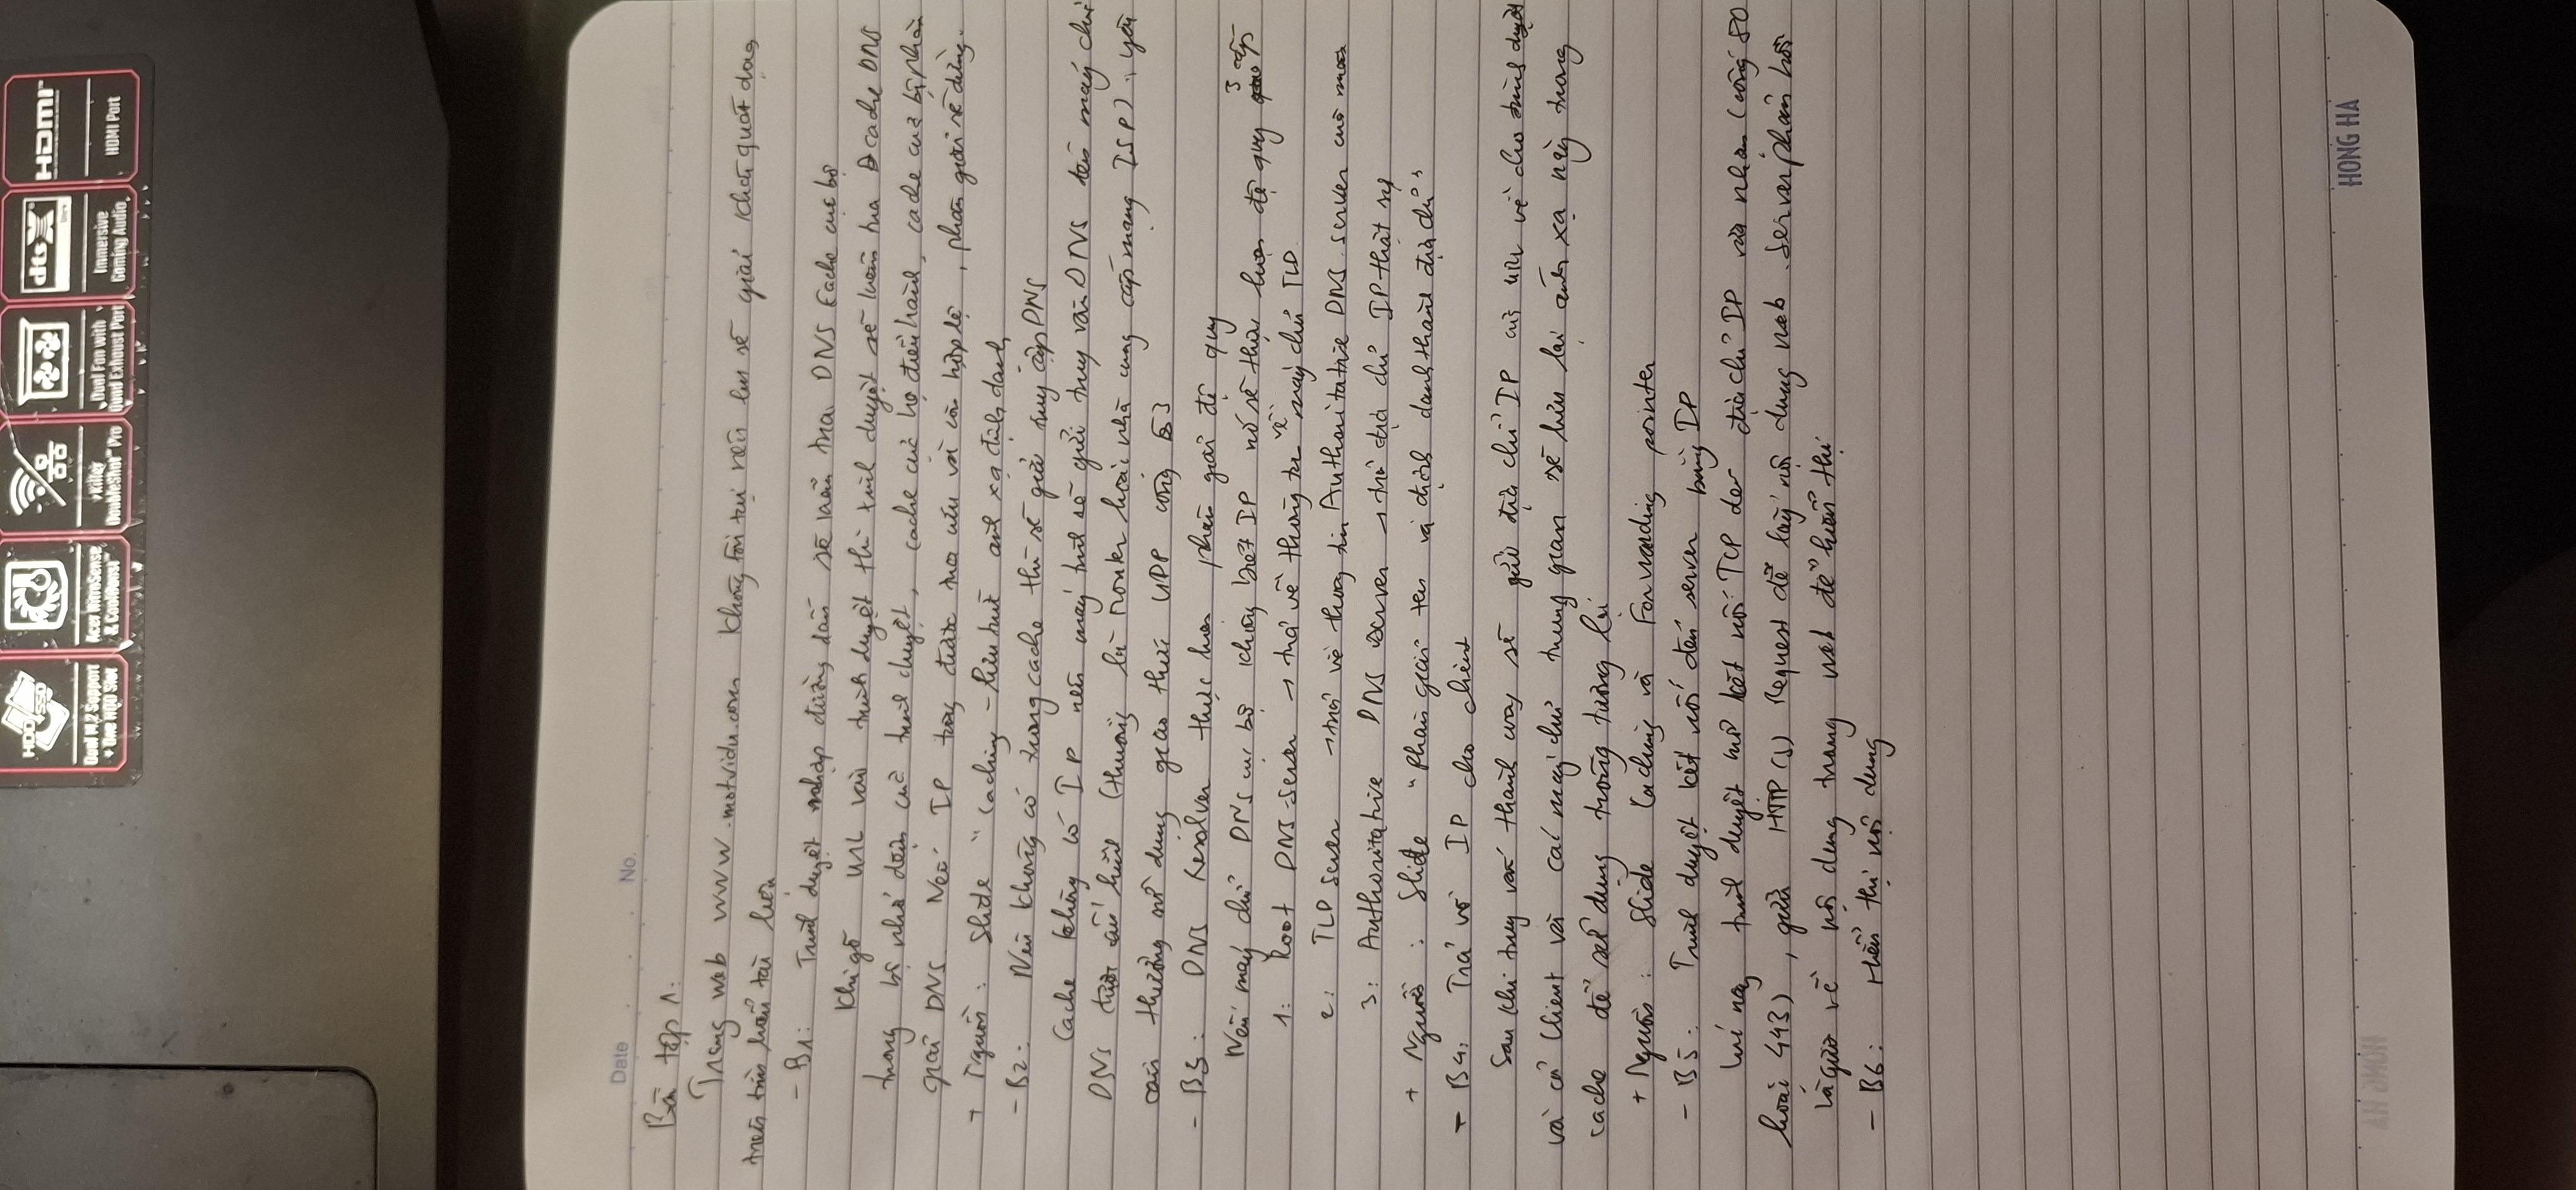 HDD SSD
Dual M.2 Support + One HDD Slot
Acer NitroSense & CoolBoost™
Killer DoubleShot™ Pro
Dual Fan with Quad Exhaust Port
dts X Ultra
Immersive Gaming Audio
HDMI™
HDMI Port
Date No.
Bài tập 1:
Trang web www.motvidu.com không tồn tại nên em sẽ giải khái quát dựa
trên tìm hiểu tài liệu
- B1: Trình duyệt nhập đường dẫn sẽ kiểm tra DNS Cache cục bộ
Khi gõ URL vào trình duyệt thì trình duyệt sẽ kiểm tra cache DNS
trong bộ nhớ đệm của trình duyệt, cache của hệ điều hành, cache của bộ phân
giải DNS. Nếu IP từng được tra cứu và còn hợp lệ, phân giải sẽ dừng.
+ Nguồn: Slide "Caching - lưu trữ ánh xạ định danh
- B2: Nếu không có trong cache thì sẽ gửi truy cập DNS
Cache không có IP nên máy tính sẽ gửi truy vấn DNS đến máy chủ
DNS được cấu hình (thường là router hoặc nhà cung cấp mạng ISP), yêu
cầu thường sử dụng giao thức UDP cổng 53
- B3: DNS Resolver thực hiện phân giải đệ quy
Nếu máy chủ DNS cục bộ không biết IP nó sẽ thực hiện đệ quy 3 cấp
1: Root DNS-server → trả về thông tin về máy chủ TLD
2: TLD server → trả về thông tin Authoritative DNS server của
3: Authoritative DNS server → trả địa chỉ IP thật sự
+ Nguồn: Slide "Phân giải tên và định danh thành địa chỉ"
- B4: Trả về IP cho client
Sau khi truy vấn thành công sẽ gửi địa chỉ IP của URL về cho trình duyệt
và cả Client và các máy chủ trung gian sẽ lưu lại ánh xạ này trong
cache để sử dụng trong tương lai
+ Nguồn: Slide Caching và Forwarding pointer
- B5: Trình duyệt kết nối đến server bằng IP
Lúc này trình duyệt mở kết nối TCP đến địa chỉ IP vừa nhận (cổng 80
hoặc 443), gửi HTTP(s) Request để lấy nội dung web. Server phản hồi
là gửi về nội dung trang web để hiển thị
- B6: Hiển thị nội dung
HONG HA